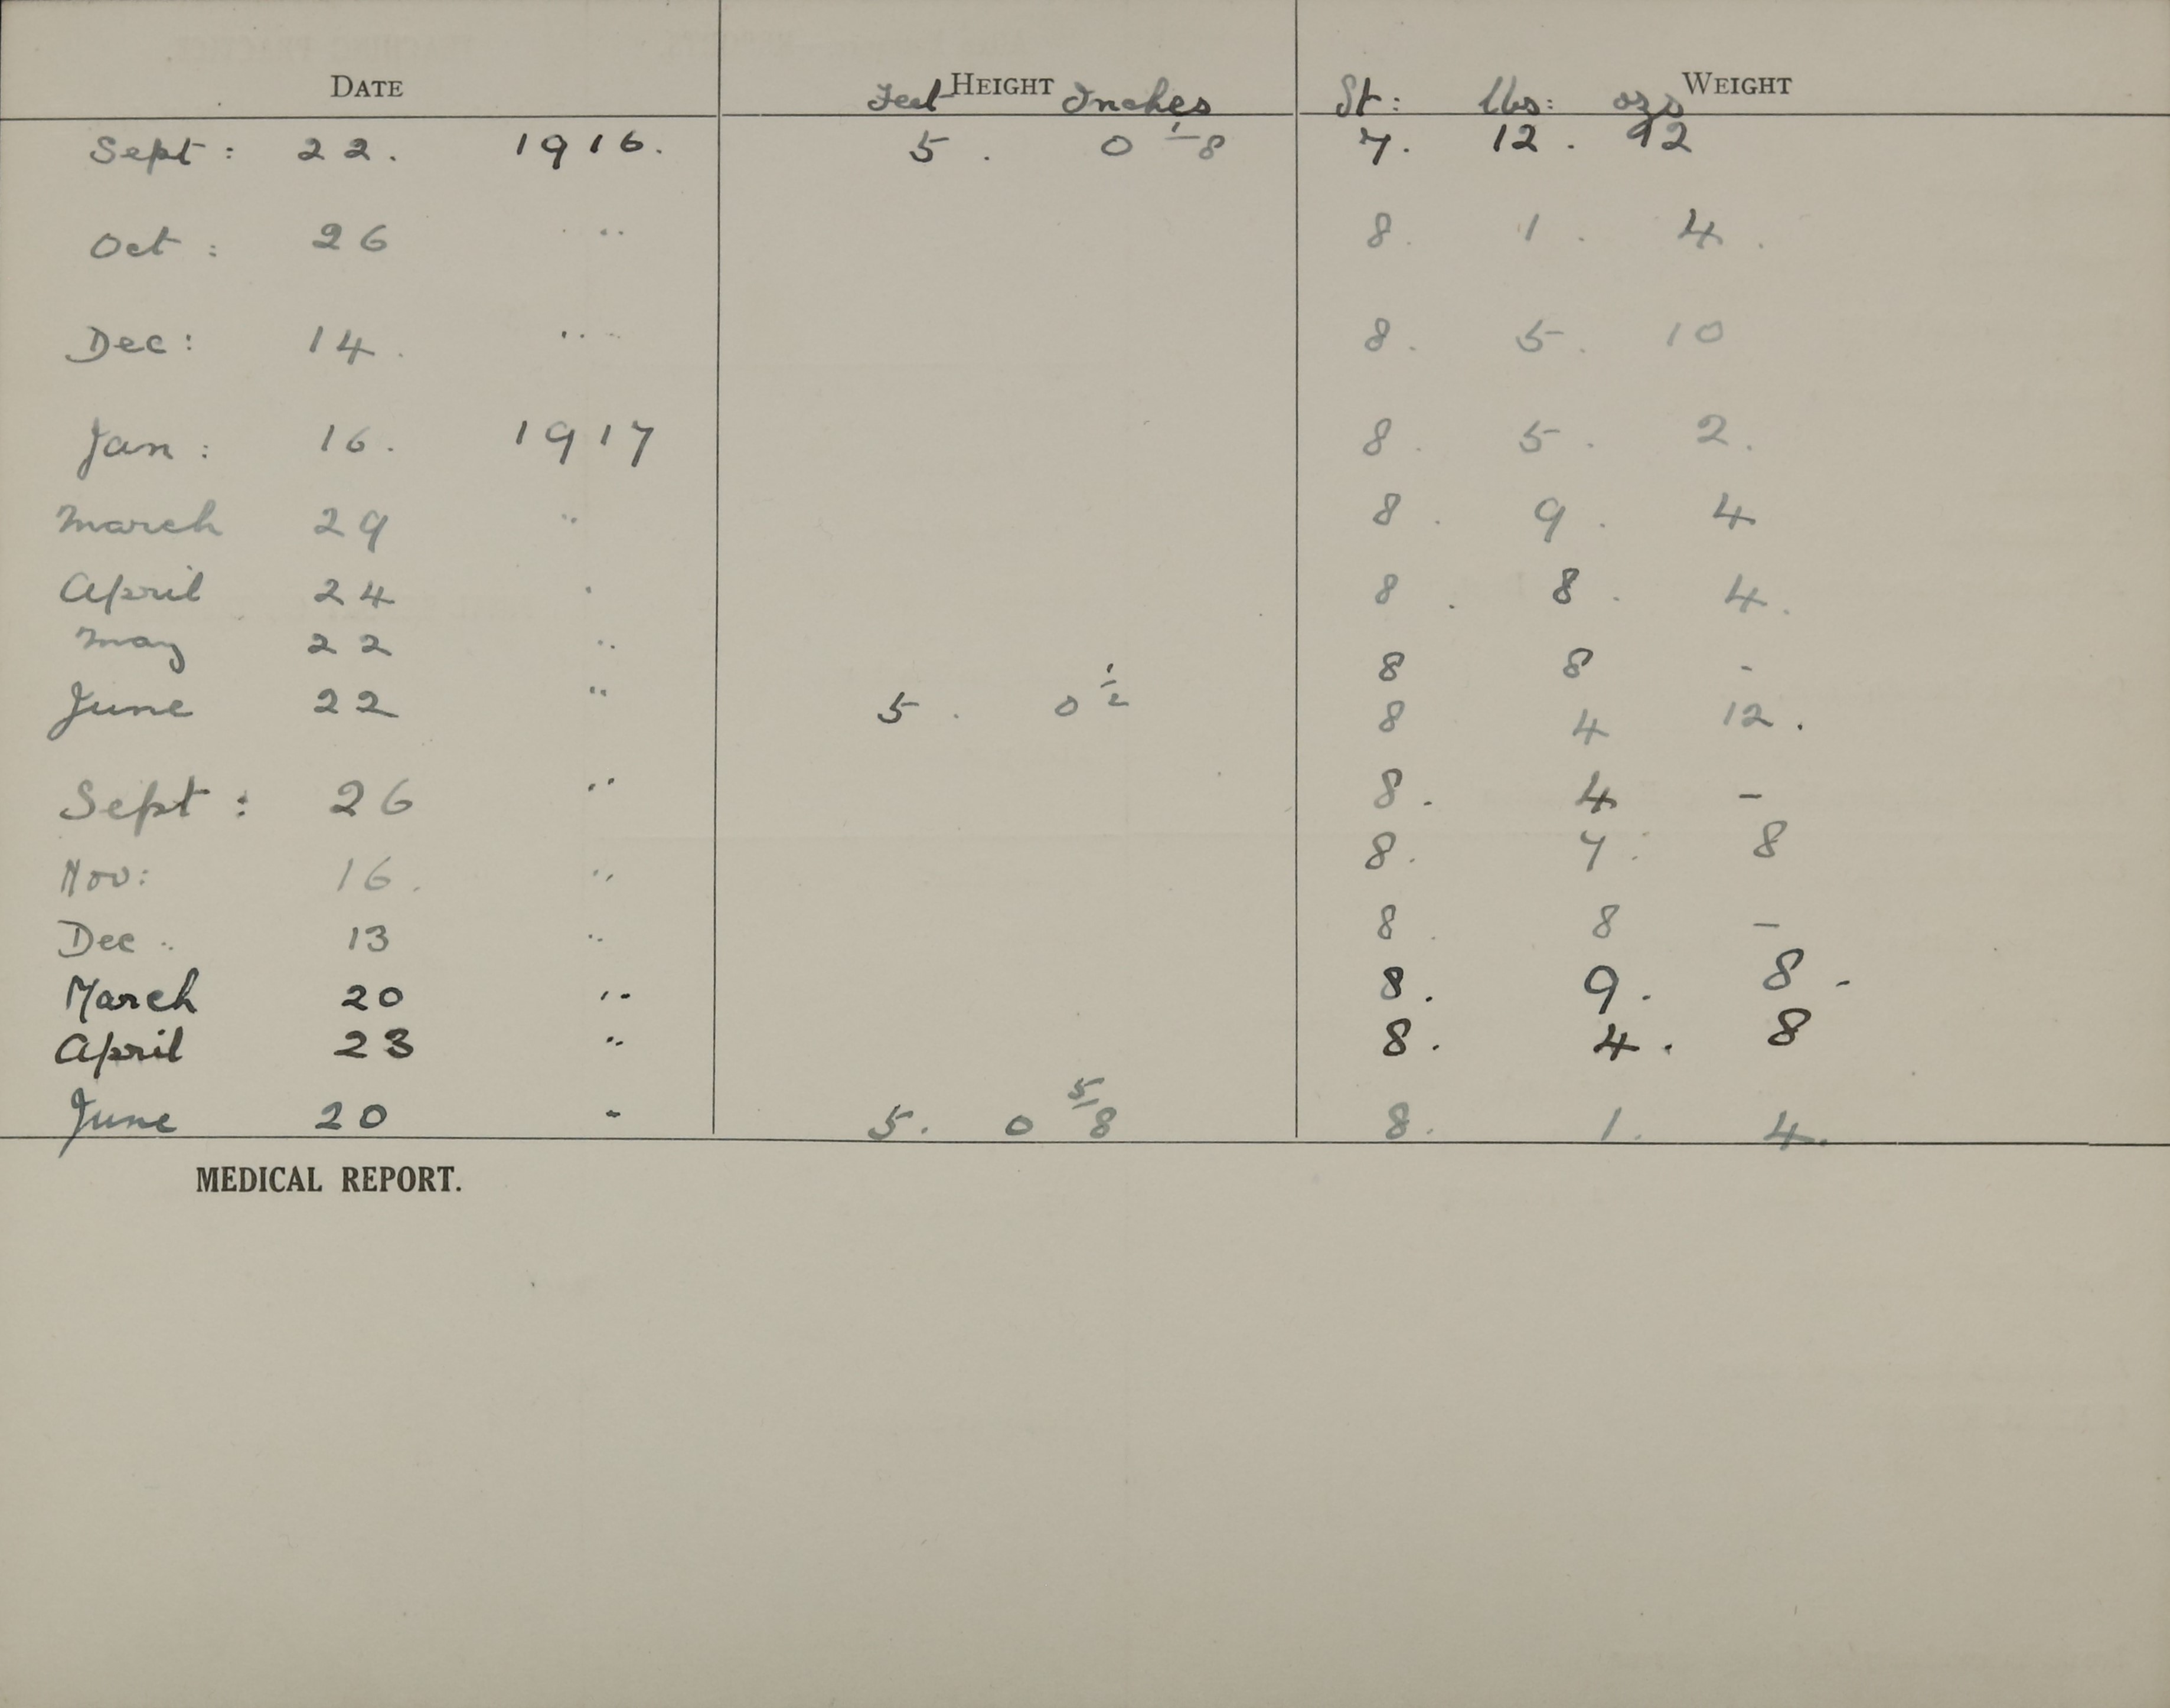 DATE HEIGHT Feet Inches WEIGHT St: lbs: ozs
Sept: 22. 1916. 5. 0 1/8 7. 12. 12
Oct: 26 " 8. 1. 4.
Dec: 14. " 8. 5. 10
Jan: 16. 1917 8. 5. 2.
March 29 " 8. 9. 4
April 24 " 8. 8. 4.
May 22 " 8 8 -
June 22 " 5. 0 1/2 8 4 12.
Sept: 26 " 8. 4 -
Nov: 16. " 8. 7. 8
Dec .. 13 " 8. 8 -
March 20 " 8. 9. 8.
April 23 " 8. 4. 8
June 20 " 5. 0 5/8 8. 1. 4.
MEDICAL REPORT.